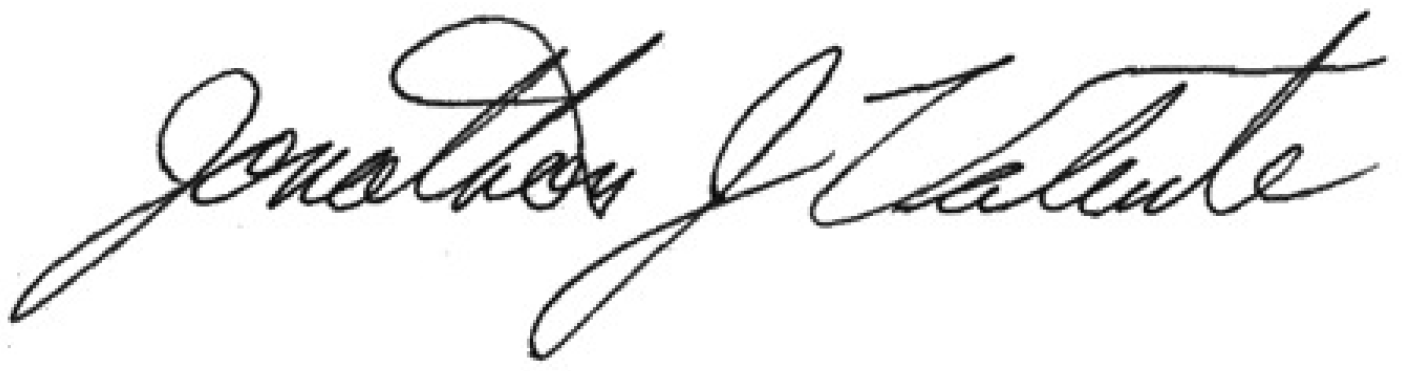 Jonathan J Valente